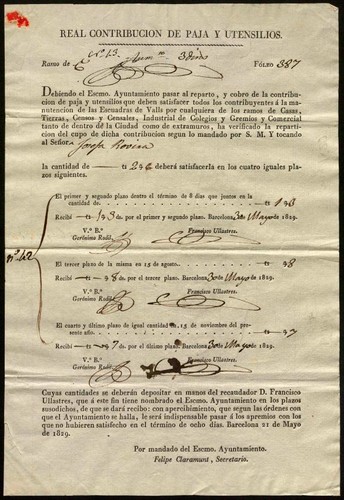 REAL CONTRIBUCION DE PAJA Y UTENSILIOS.
Ramo de
FÓLEO 387
Debiendo el Escmo. Ayuntamiento pasar al reparto, y cobro de la contribucion
de paja y utensilios que deben satisfacer todos los contribuyentes á la ma-
nutencion de las Escuadras de Valls por cualquiera de los ramos de Casas,
Tierras, Censos y Censales, Industrial de Colegios y Gremios y Comercial
tanto de dentro de la Ciudad como de extramuros, ha verificado la reparti-
cion del cupo de dicha contribucion segun lo mandado por S. M. Y tocando
al Señor Josefa Rovira
la cantidad de deberá satisfacerla en los cuatro iguales pla-
zos siguientes.
El primero y segundo plazo dentro del término de 8 dias que juntos son la
cantidad de
Recibí por el primer y segundo plazo. Barcelona 30 Mayo 1829.
V.º B.º Francisco Ullastres.
Gerónimo Rodil
El tercer plazo de la misma en 15 de agosto
Recibí 8 ds. por el tercer plazo. Barcelona 30 Mayo de 1829.
V.º B.º Francisco Ullastres
Gerónimo Rodil
nº 42
El cuarto y último plazo de igual cantidad en 15 de noviembre del pre-
sente año.
Recibí 7 ds. por el último plazo. Barcelona 30 Mayo de 1829.
V.º B.º Francisco Ullastres
Gerónimo Rodil.
Cuyas cantidades se deberán depositar en manos del recaudador D. Francisco
Ullastres, que á este fin tiene nombrado el Escmo. Ayuntamiento en los plazos
susodichos, de que se dará recibo: con apercibimiento, que segun las órdenes con
que el Ayuntamiento se halla, le será indispensable pasar á los apremios con los
que no hubieren satisfecho en el término de ocho dias. Barcelona 21 de Mayo
de 1829.
Por mandado del Escmo. Ayuntamiento.
Felipe Claramunt, Secretario.